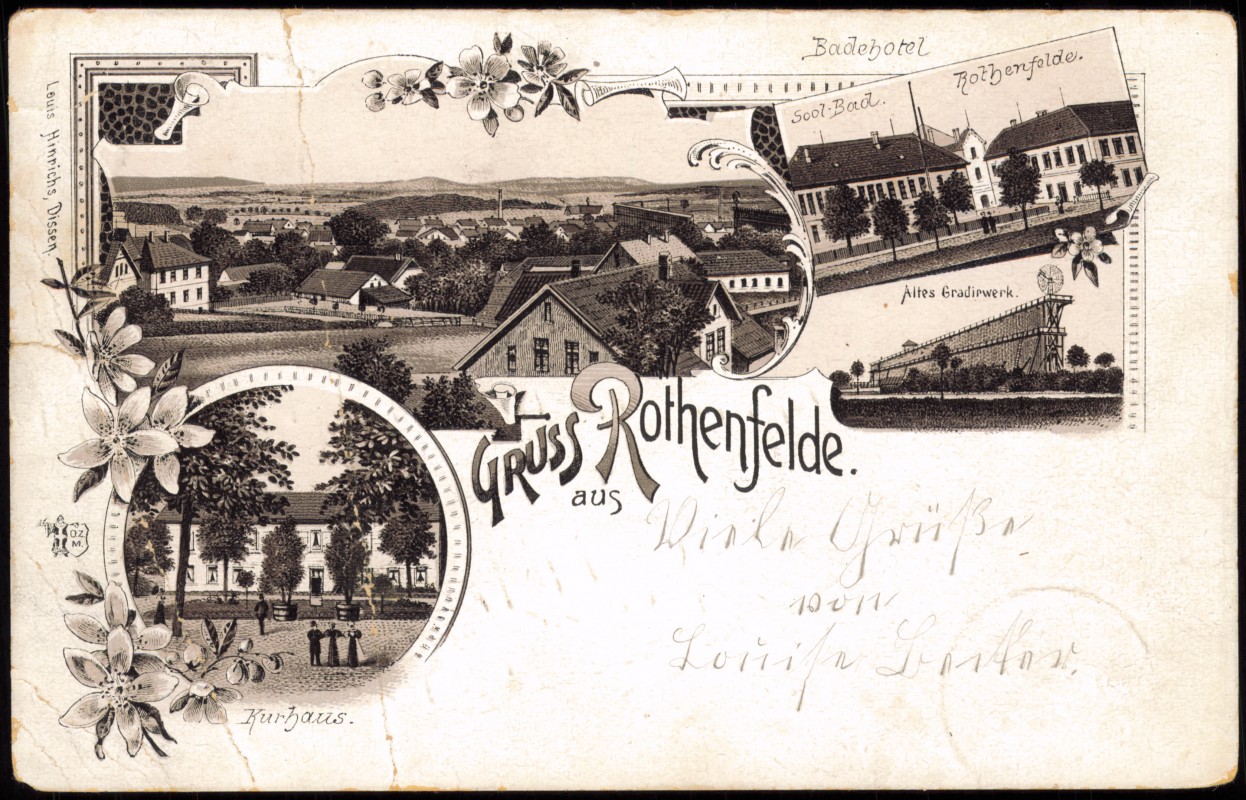 Badehotel
Sool-Bad. Rothenfelde.
Louis Hinrichs, Dissen.
Altes Gradirwerk.
GRUSS
aus
Rothenfelde.
O.Z.
M.
Viele Grüße
von
Louise Becker.
Kurhaus.